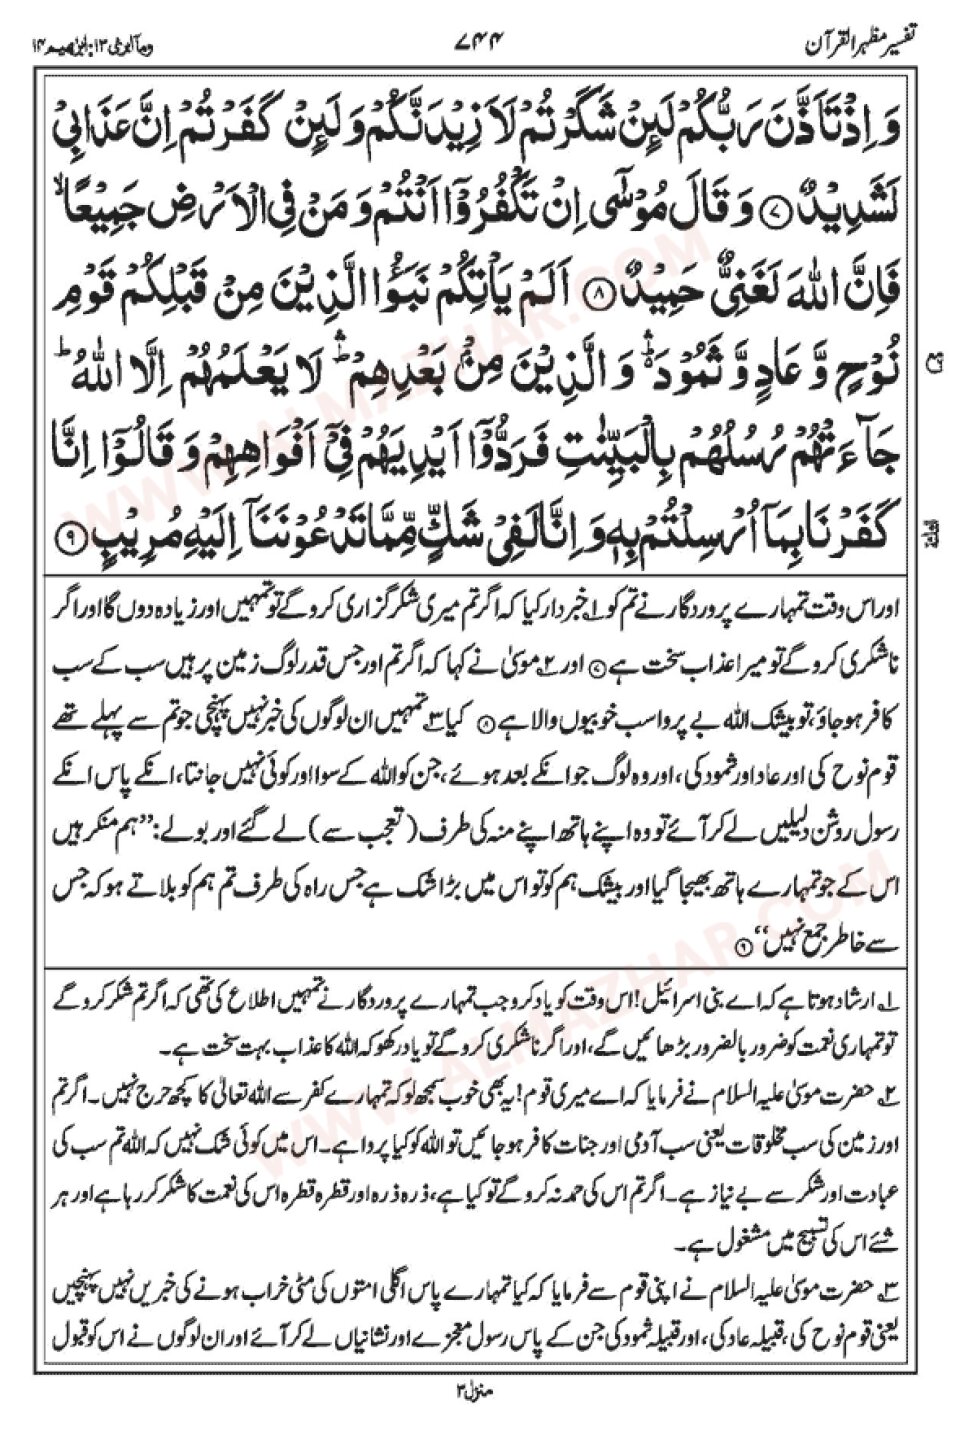 تفسیر مظہر القرآن ۷۴۴ وما ابرئ ۱۳: ابرٰھیم ۱۴
وَ اِذْ تَاَذَّنَ رَبُّكُمْ لَىِٕنْ شَكَرْتُمْ لَاَزِیْدَنَّكُمْ وَ لَىِٕنْ كَفَرْتُمْ اِنَّ عَذَابِیْ
لَشَدِیْدٌ ۷ وَ قَالَ مُوْسٰۤی اِنْ تَكْفُرُوْۤا اَنْتُمْ وَ مَنْ فِی الْاَرْضِ جَمِیْعًا ۙ
فَاِنَّ اللّٰهَ لَغَنِیٌّ حَمِیْدٌ ۸ اَلَمْ یَاْتِكُمْ نَبَؤُا الَّذِیْنَ مِنْ قَبْلِكُمْ قَوْمِ
نُوْحٍ وَّ عَادٍ وَّ ثَمُوْدَ ۛؕ وَ الَّذِیْنَ مِنْۢ بَعْدِهِمْ ۛؕ لَا یَعْلَمُهُمْ اِلَّا اللّٰهُ ؕ
جَآءَتْهُمْ رُسُلُهُمْ بِالْبَیِّنٰتِ فَرَدُّوْۤا اَیْدِیَهُمْ فِیْۤ اَفْوَاهِهِمْ وَ قَالُوْۤا اِنَّا
كَفَرْنَا بِمَاۤ اُرْسِلْتُمْ بِهٖ وَ اِنَّا لَفِیْ شَكٍّ مِّمَّا تَدْعُوْنَنَاۤ اِلَیْهِ مُرِیْبٍ ۹
اور اس وقت تمہارے پروردگار نے تم کو ۱؎ خبردار کیا کہ اگر تم میری شکر گزاری کرو گے تو تمہیں اور زیادہ دوں گا اور اگر
ناشکری کرو گے تو میرا عذاب سخت ہے ۷ اور ۲؎ موسیٰ نے کہا کہ اگر تم اور جس قدر لوگ زمین پر ہیں سب کے سب
کافر ہو جاؤ، تو بیشک اللہ بے پروا سب خوبیوں والا ہے ۸ کیا ۳؎ تمہیں ان لوگوں کی خبر نہیں پہنچی جو تم سے پہلے تھے
قوم نوح کی اور عاد اور ثمود کی، اور وہ لوگ جو انکے بعد ہوئے، جن کو اللہ کے سوا اور کوئی نہیں جانتا، انکے پاس انکے
رسول روشن دلیلیں لے کر آئے تو وہ اپنے ہاتھ اپنے منہ کی طرف (تعجب سے) لے گئے اور بولے: ’’ہم منکر ہیں
اس کے جو تمہارے ہاتھ بھیجا گیا اور بیشک ہم کو تو اس میں بڑا شک ہے جس راہ کی طرف تم ہم کو بلاتے ہو کہ جس
سے خاطر جمع نہیں‘‘ ۹
۱؎ ارشاد ہوتا ہے کہ اے بنی اسرائیل! اس وقت کو یاد کرو جب تمہارے پروردگار نے تمہیں اطلاع کی تھی کہ اگر تم شکر کرو گے
تو تمہاری نعمت کو ضرور بالضرور بڑھائیں گے، اور اگر ناشکری کرو گے تو یاد رکھو کہ اللہ کا عذاب بہت سخت ہے۔
۲؎ حضرت موسیٰ علیہ السلام نے فرمایا کہ اے میری قوم! یہ بھی خوب سمجھ لو کہ تمہارے کفر سے اللہ تعالیٰ کا کچھ حرج نہیں۔ اگر تم
اور زمین کی سب مخلوقات یعنی سب آدمی اور جنات کافر ہو جائیں تو اللہ کو کیا پروا ہے۔ اس میں کوئی شک نہیں کہ اللہ تم سب کی
عبادت اور شکر سے بے نیاز ہے۔ اگر تم اس کی حمد نہ کرو گے تو کیا ہے، ذرہ ذرہ اور قطرہ قطرہ اس کی نعمت کا شکر کر رہا ہے اور ہر
شئے اس کی تسبیح میں مشغول ہے۔
۳؎ حضرت موسیٰ علیہ السلام نے اپنی قوم سے فرمایا کہ کیا تمہارے پاس اگلی امتوں کی مٹی خراب ہونے کی خبریں نہیں پہنچیں
یعنی قوم نوح کی، قبیلہ عاد کی، اور قبیلہ ثمود کی جن کے پاس رسول معجزے اور نشانیاں لے کر آئے اور ان لوگوں نے اس کو قبول
منزل ۳
WWW.ALMAZHAR.COM
WWW.ALMAZHAR.COM